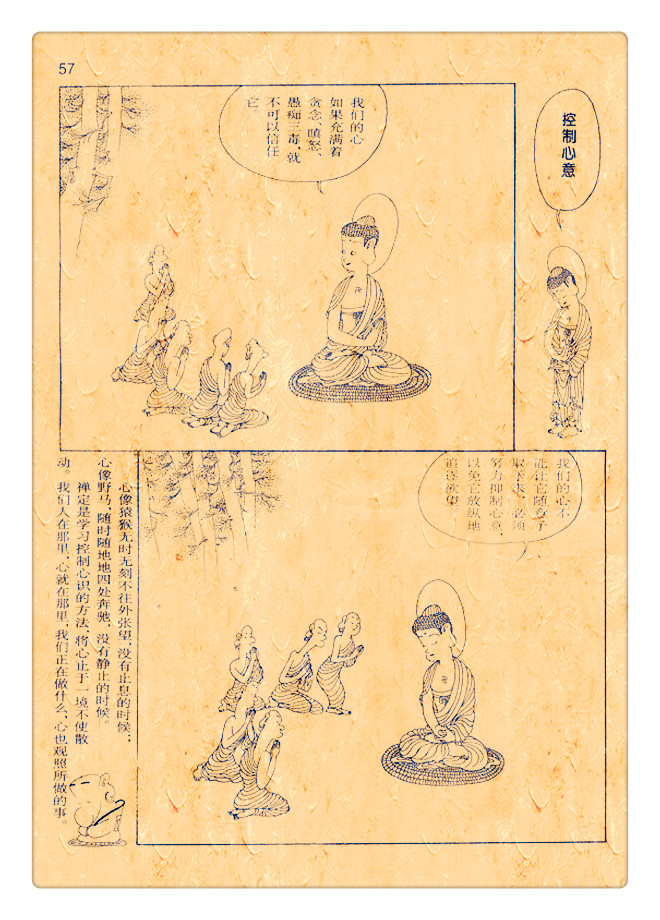 57
控制心意
我们的心
如果充满着
贪念、瞋怒、
愚痴三毒，就
不可以信任
它。
我们的心不
能让它随意予
取予求，必须
努力抑制心意，
以免它放纵地
追逐欲望。
心像猿猴无时无刻不往外张望，没有止息的时候；
心像野马，随时随地四处奔驰，没有静止的时候。
禅定是学习控制心识的方法，将心止于一境不使散
动。我们人在那里，心就在那里，我们正在做什么，心也观照所做的事。